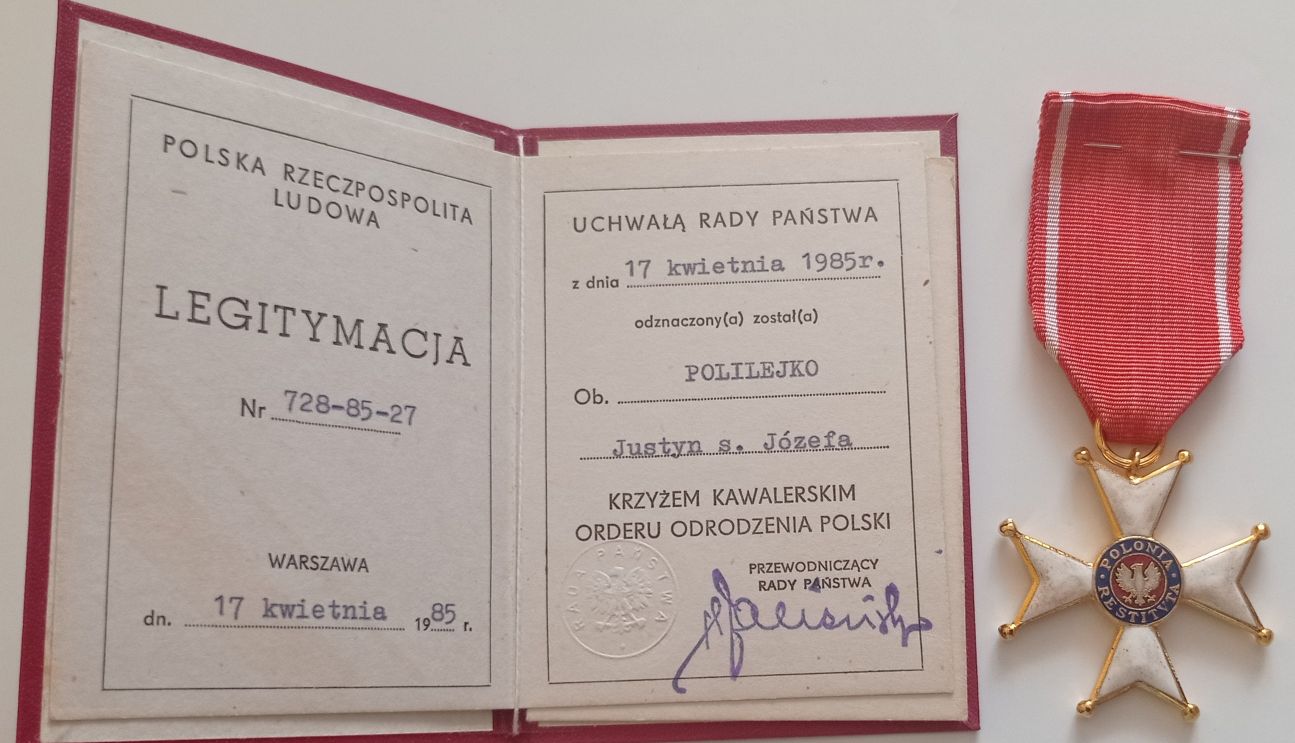 POLSKA RZECZPOSPOLITA
LUDOWA
LEGITYMACJA
Nr 728-85-27
WARSZAWA
dn. 17 kwietnia 1985 r.
UCHWAŁĄ RADY PAŃSTWA
z dnia 17 kwietnia 1985r.
odznaczony(a) został(a)
Ob. POLILEJKO
Justyn s. Józefa
KRZYŻEM KAWALERSKIM
ORDERU ODRODZENIA POLSKI
PRZEWODNICZĄCY
RADY PAŃSTWA
RADA PAŃSTWA
POLONIA
RESTITVTA